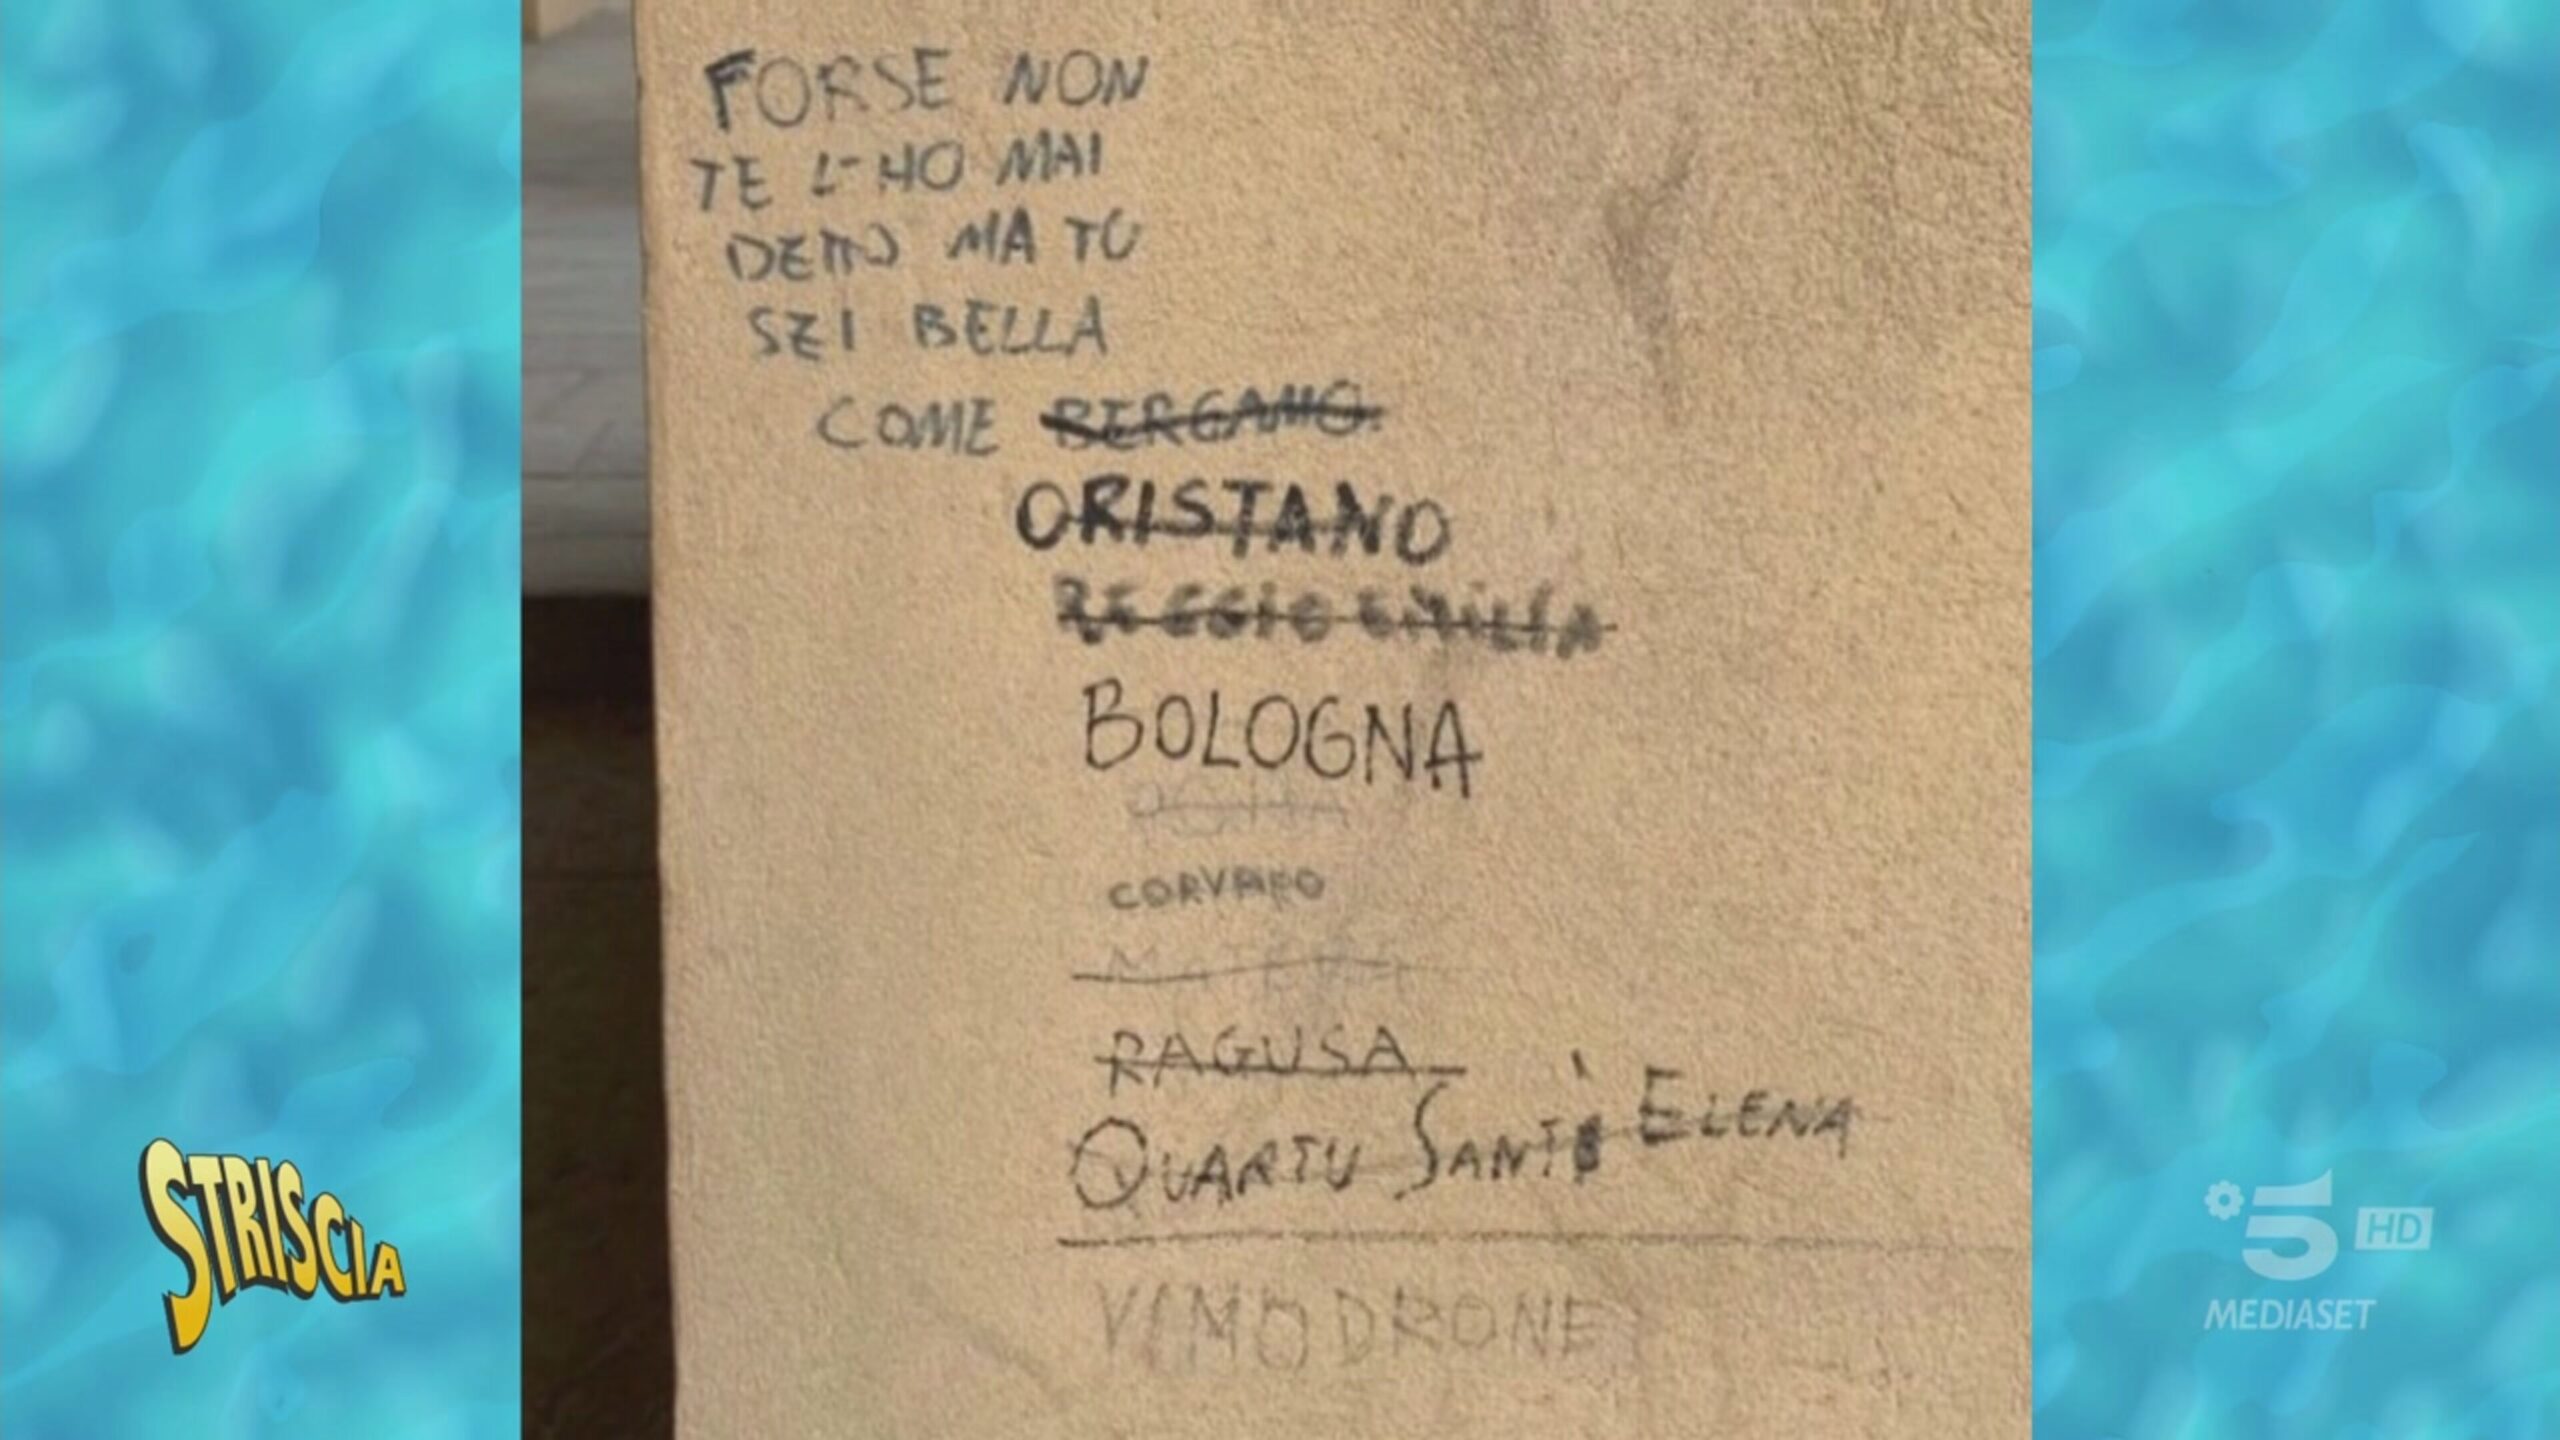 FORSE NON
TE L'HO MAI
DETTO MA TU
SEI BELLA
COME BERGAMO
ORISTANO
REGGIO EMILIA
BOLOGNA
RAGUSA
QUARTU SANT' ELENA
VIMODRONE
STRISCIA
5 HD
MEDIASET